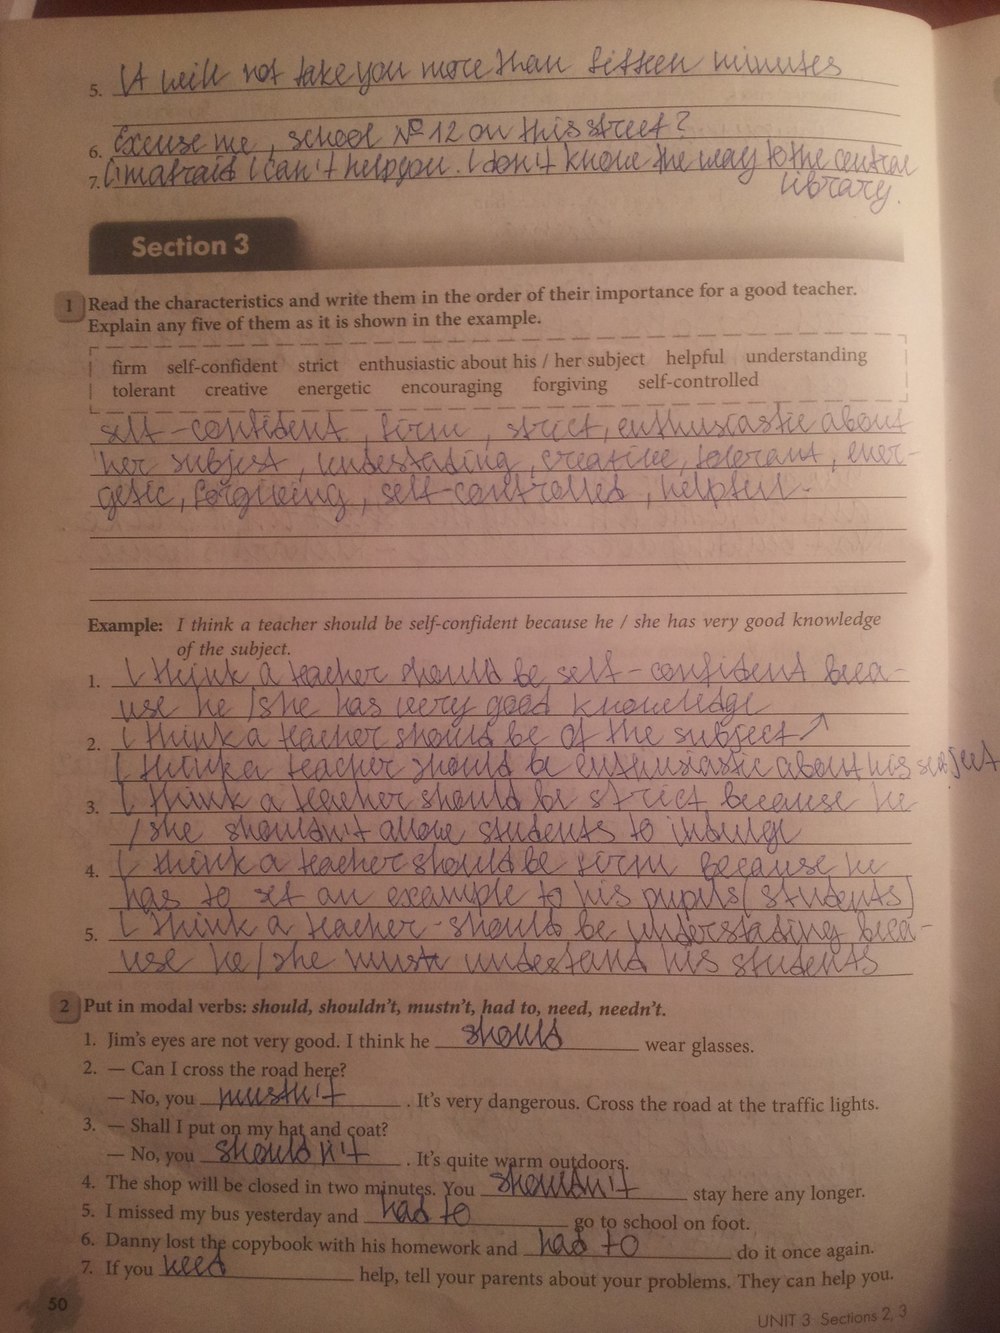 5. It will not take you more than fifteen minutes
6. Excuse me, school № 12 on this street?
7. I'm afraid I can't help you. I don't know the way to the central
library.
Section 3
1 Read the characteristics and write them in the order of their importance for a good teacher.
Explain any five of them as it is shown in the example.
firm self-confident strict enthusiastic about his / her subject helpful understanding
tolerant creative energetic encouraging forgiving self-controlled
self-confident, firm, strict, enthusiastic about
her subject, undestading, creative, tolerant, ener-
getic, forgiveing, self-controlled, helpful.
Example: I think a teacher should be self-confident because he / she has very good knowledge
of the subject.
1. I think a teacher should be self-confident beca-
use he /she has very good knowledge
2. I think a teacher should be of the subject
I think a teacher should be enthusiastic about his subject
3. I think a teacher should be strict because he
/she shouldn't allow students to indulge
4. I think a teacher should be firm because he
has to set an example to his pupils (students)
5. I think a teacher should be understading beca-
use he/she must undestand his students
2 Put in modal verbs: should, shouldn't, mustn't, had to, need, needn't.
1. Jim's eyes are not very good. I think he should wear glasses.
2. — Can I cross the road here?
— No, you mustn't. It's very dangerous. Cross the road at the traffic lights.
3. — Shall I put on my hat and coat?
— No, you shouldn't. It's quite warm outdoors.
4. The shop will be closed in two minutes. You shouldn't stay here any longer.
5. I missed my bus yesterday and had to go to school on foot.
6. Danny lost the copybook with his homework and had to do it once again.
7. If you need help, tell your parents about your problems. They can help you.
50
UNIT 3 Sections 2, 3